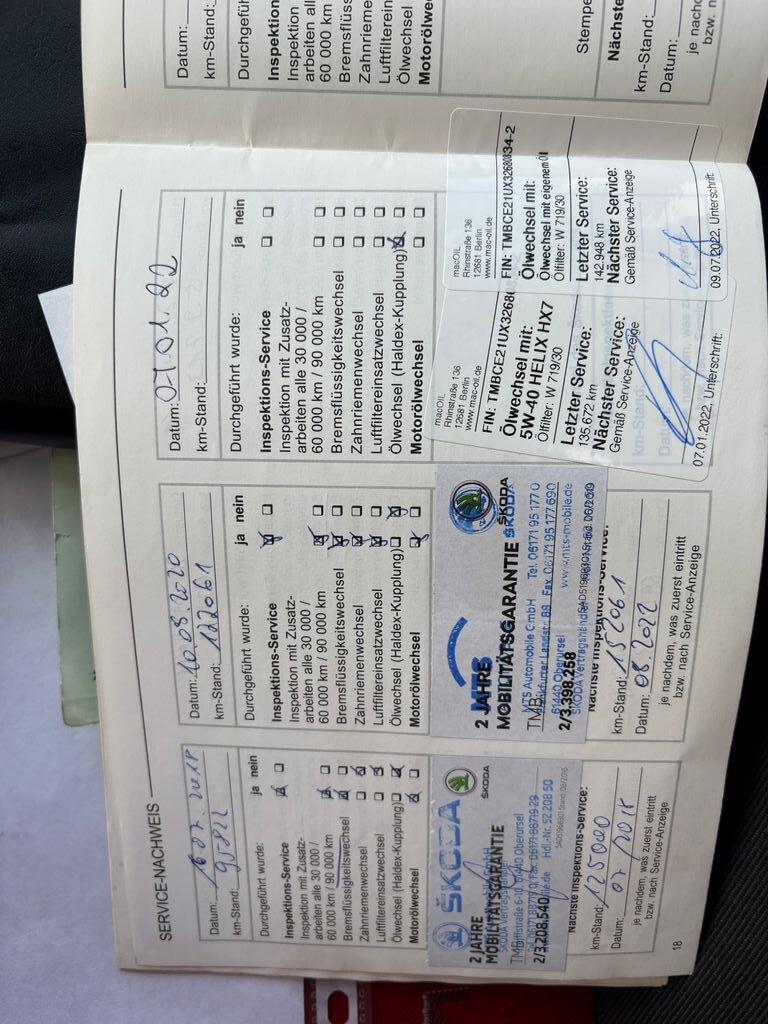 SERVICE-NACHWEIS
Datum: 16.07.2018
km-Stand: 95822
Durchgeführt wurde: ja nein
Inspektions-Service
Inspektion mit Zusatz-
arbeiten alle 30 000 /
60 000 km / 90 000 km
Bremsflüssigkeitswechsel
Zahnriemenwechsel
Luftfiltereinsatzwechsel
Ölwechsel (Haldex-Kupplung)
Motorölwechsel
ŠKODA
ŠKODA
2 JAHRE
MOBILITÄTSGARANTIE
TMB
2/3.208.540
Hdl.-Nr. 52 208 50
Nächste Inspektions-Service:
km-Stand: 125000
Datum: 07/2018
je nachdem, was zuerst eintritt
bzw. nach Service-Anzeige
18
Datum: 10.08.2020
km-Stand: 122061
Durchgeführt wurde: ja nein
Inspektions-Service
Inspektion mit Zusatz-
arbeiten alle 30 000 /
60 000 km / 90 000 km
Bremsflüssigkeitswechsel
Zahnriemenwechsel
Luftfiltereinsatzwechsel
Ölwechsel (Haldex-Kupplung)
Motorölwechsel
MTS
ŠKODA
2 JAHRE
MOBILITÄTSGARANTIE ŠKODA
MTS Automobile GmbH Tel. 06171 95 177 0
Frankfurter Landstr. Fax 06171 95 177 690
61440 Oberursel www.mts-mobile.de
ŠKODA Vertragshändler
TMB
2/3.398.258
Nächste Inspektions-Service:
km-Stand: 152061
Datum: 08.2022
je nachdem, was zuerst eintritt
bzw. nach Service-Anzeige
Datum: 07.01.22
km-Stand:
Durchgeführt wurde: ja nein
Inspektions-Service
Inspektion mit Zusatz-
arbeiten alle 30 000 /
60 000 km / 90 000 km
Bremsflüssigkeitswechsel
Zahnriemenwechsel
Luftfiltereinsatzwechsel
Ölwechsel (Haldex-Kupplung)
Motorölwechsel
macOIL
Rhinstraße 136
12681 Berlin
www.mac-oil.de
FIN: TMBCE21UX32680
Ölwechsel mit:
5W-40 HELIX HX7
Ölfilter: W 719/30
Letzter Service:
135.672 km
Nächster Service:
Gemäß Service-Anzeige
07.01.2022, Unterschrift:
macOIL
Rhinstraße 136
12681 Berlin
www.mac-oil.de
FIN: TMBCE21UX32680834-2
Ölwechsel mit:
Ölwechsel mit eigenem Öl
Ölfilter: W 719/30
Letzter Service:
142.948 km
Nächster Service:
Gemäß Service-Anzeige
09.07.2022, Unterschrift
Datum:
km-Stand:
Durchgefüh
Inspektion
Inspektion
arbeiten all
60 000 km
Bremsflüss
Zahnrieme
Luftfilterein
Ölwechsel
Motorölwec
Stempe
Nächste
km-Stand:
Datum:
je nach
bzw. n